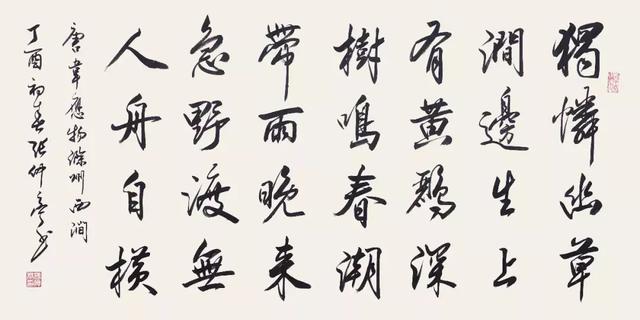 獨憐幽草
澗邊生上
有黄鸝深
樹鳴春潮
帶雨晚来
急野渡無
人舟自横
唐韋應物滁州西澗
丁酉初春张仲亭书